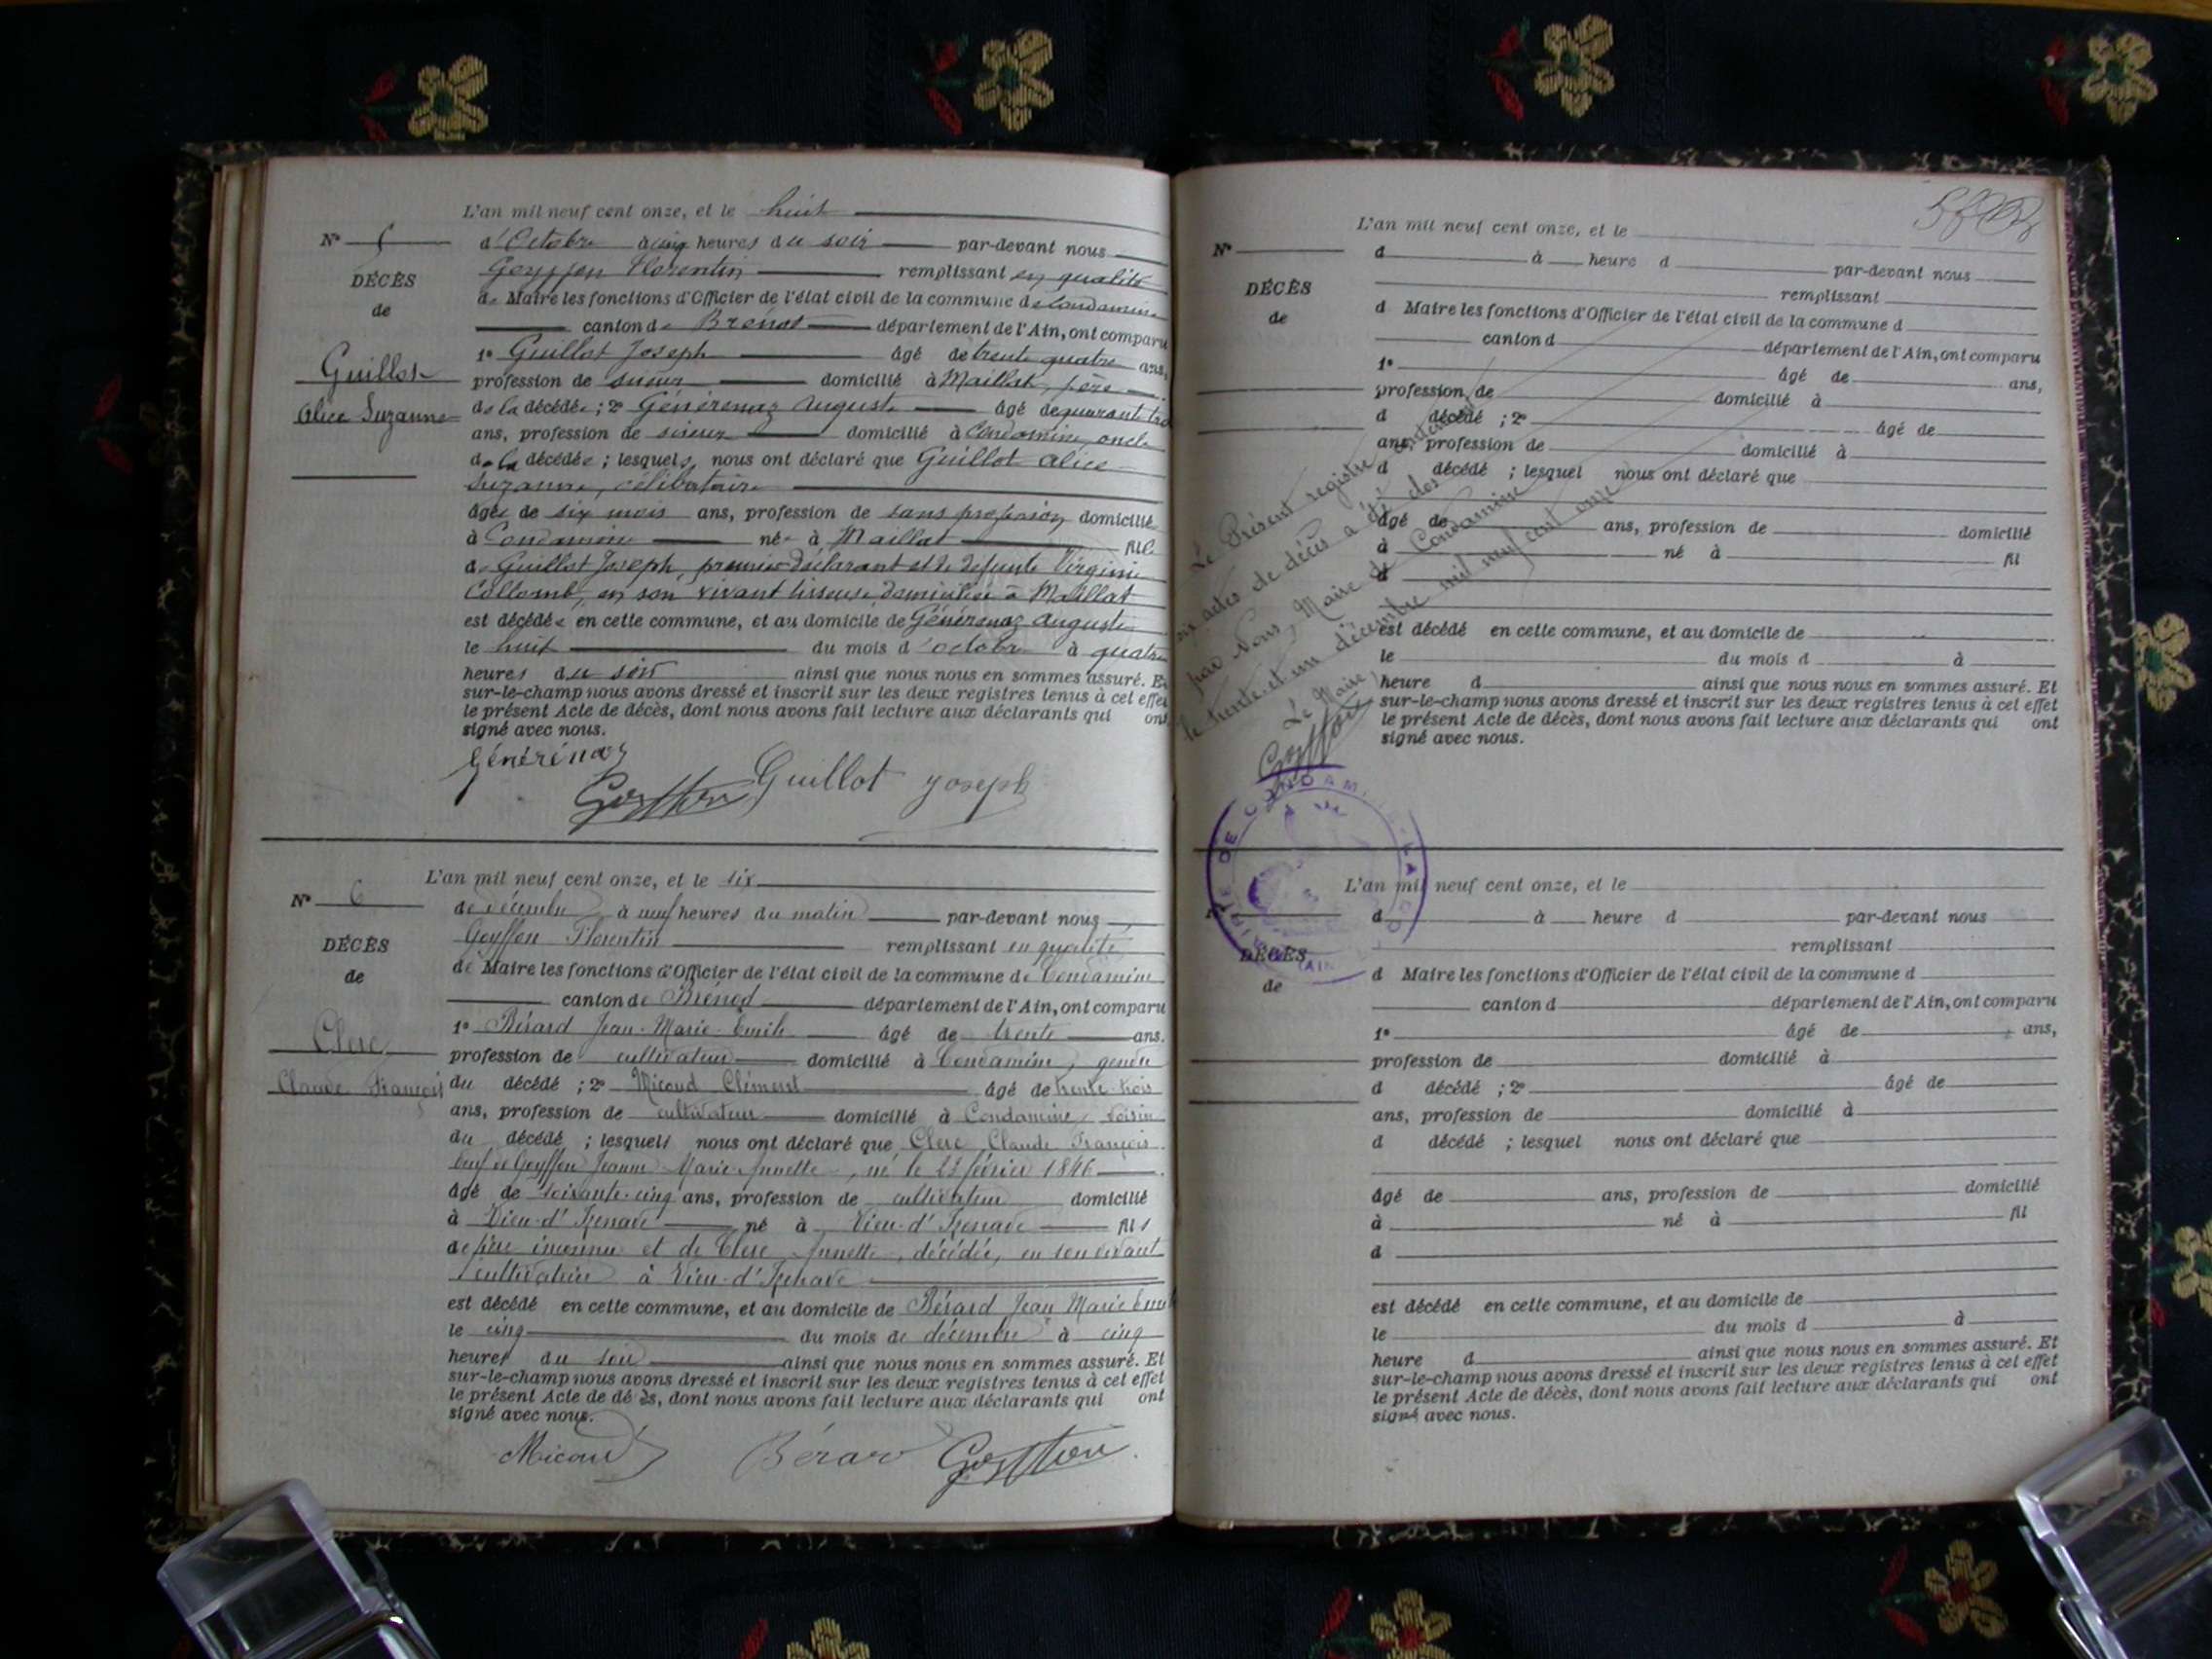 L'an mil neuf cent onze, et le huit
N° 5
d'Octobre à cinq heures du soir par-devant nous
Goyffon Florentin remplissant en qualité
DÉCÈS
de Maire les fonctions d'Officier de l'état civil de la commune de Condamine
de
canton de Brénod département de l'Ain, ont comparu
1° Guillot Joseph âgé de trente quatre ans,
Guillot
profession de scieur domicilié à Maillat, père
Alice Suzanne
de la décédée ; 2° Générenaz Auguste âgé de quarante
ans, profession de scieur domicilié à Condamine, oncle
de la décédée ; lesquels nous ont déclaré que Guillot Alice
Suzanne, célibataire
âgée de six mois ans, profession de sans profession domicilié
à Condamine née à Maillat fille
de Guillot Joseph, premier déclarant et de défunte Virginie
Collomb, en son vivant tisseuse domiciliée à Maillat
est décédée en cette commune, et au domicile de Générenaz Auguste
le huit du mois d'octobre à quatre
heures du soir ainsi que nous nous en sommes assuré. Et
sur-le-champ nous avons dressé et inscrit sur les deux registres tenus à cet effet
le présent Acte de décès, dont nous avons fait lecture aux déclarants qui ont
signé avec nous.
Générénaz
Goyffon Guillot Joseph
L'an mil neuf cent onze, et le six
N° 6
de décembre à neuf heures du matin par-devant nous
Goyffon Florentin remplissant en qualité
DÉCÈS
de Maire les fonctions d'Officier de l'état civil de la commune de Condamine
de
canton de Brénod département de l'Ain, ont comparu
1° Bérard Jean-Marie-Emile âgé de trente ans.
Clerc
profession de cultivateur domicilié à Condamine, gendre
Claude François
du décédé ; 2° Micoud Clément âgé de trente-trois
ans, profession de cultivateur domicilié à Condamine, voisin
du décédé ; lesquels nous ont déclaré que Clerc Claude François
veuf de Goyffon Jeanne Marie Annette, né le 23 février 1846
âgé de soixante-cinq ans, profession de cultivateur domicilié
à Vieu-d'Izenave né à Vieu-d'Izenave fils
de père inconnu et de Clerc Annette, décédée, en son vivant
cultivatrice à Vieu-d'Izenave
est décédé en cette commune, et au domicile de Bérard Jean Marie Emile
le cinq du mois de décembre à cinq
heures du soir ainsi que nous nous en sommes assuré. Et
sur-le-champ nous avons dressé et inscrit sur les deux registres tenus à cet effet
le présent Acte de décès, dont nous avons fait lecture aux déclarants qui ont
signé avec nous.
Micoud Bérard Goyffon
L'an mil neuf cent onze, et le
N°
d à heure d par-devant nous
remplissant
DÉCÈS
d Maire les fonctions d'Officier de l'état civil de la commune d
de
canton d département de l'Ain, ont comparu
1° âgé de ans,
profession de domicilié à
d décédé ; 2° âgé de
ans, profession de domicilié à
d décédé ; lesquel nous ont déclaré que
âgé de ans, profession de domicilié
à né à fil
d
est décédé en cette commune, et au domicile de
le du mois d à
heure d ainsi que nous nous en sommes assuré. Et
sur-le-champ nous avons dressé et inscrit sur les deux registres tenus à cet effet
le présent Acte de décès, dont nous avons fait lecture aux déclarants qui ont
signé avec nous.
Le Présent registre contenant
six actes de décès a été clos
par Nous, Maire de Condamine
le trente-et-un décembre mil neuf cent onze
Le Maire
Goyffon
MAIRIE DE CONDAMINE-LA-DO
(AIN)
L'an mil neuf cent onze, et le
d à heure d par-devant nous
remplissant
DÉCÈS
d Maire les fonctions d'Officier de l'état civil de la commune d
de
canton d département de l'Ain, ont comparu
1° âgé de ans,
profession de domicilié à
d décédé ; 2° âgé de
ans, profession de domicilié à
d décédé ; lesquel nous ont déclaré que
âgé de ans, profession de domicilié
à né à fil
d
est décédé en cette commune, et au domicile de
le du mois d à
heure d ainsi que nous nous en sommes assuré. Et
sur-le-champ nous avons dressé et inscrit sur les deux registres tenus à cet effet
le présent Acte de décès, dont nous avons fait lecture aux déclarants qui ont
signé avec nous.